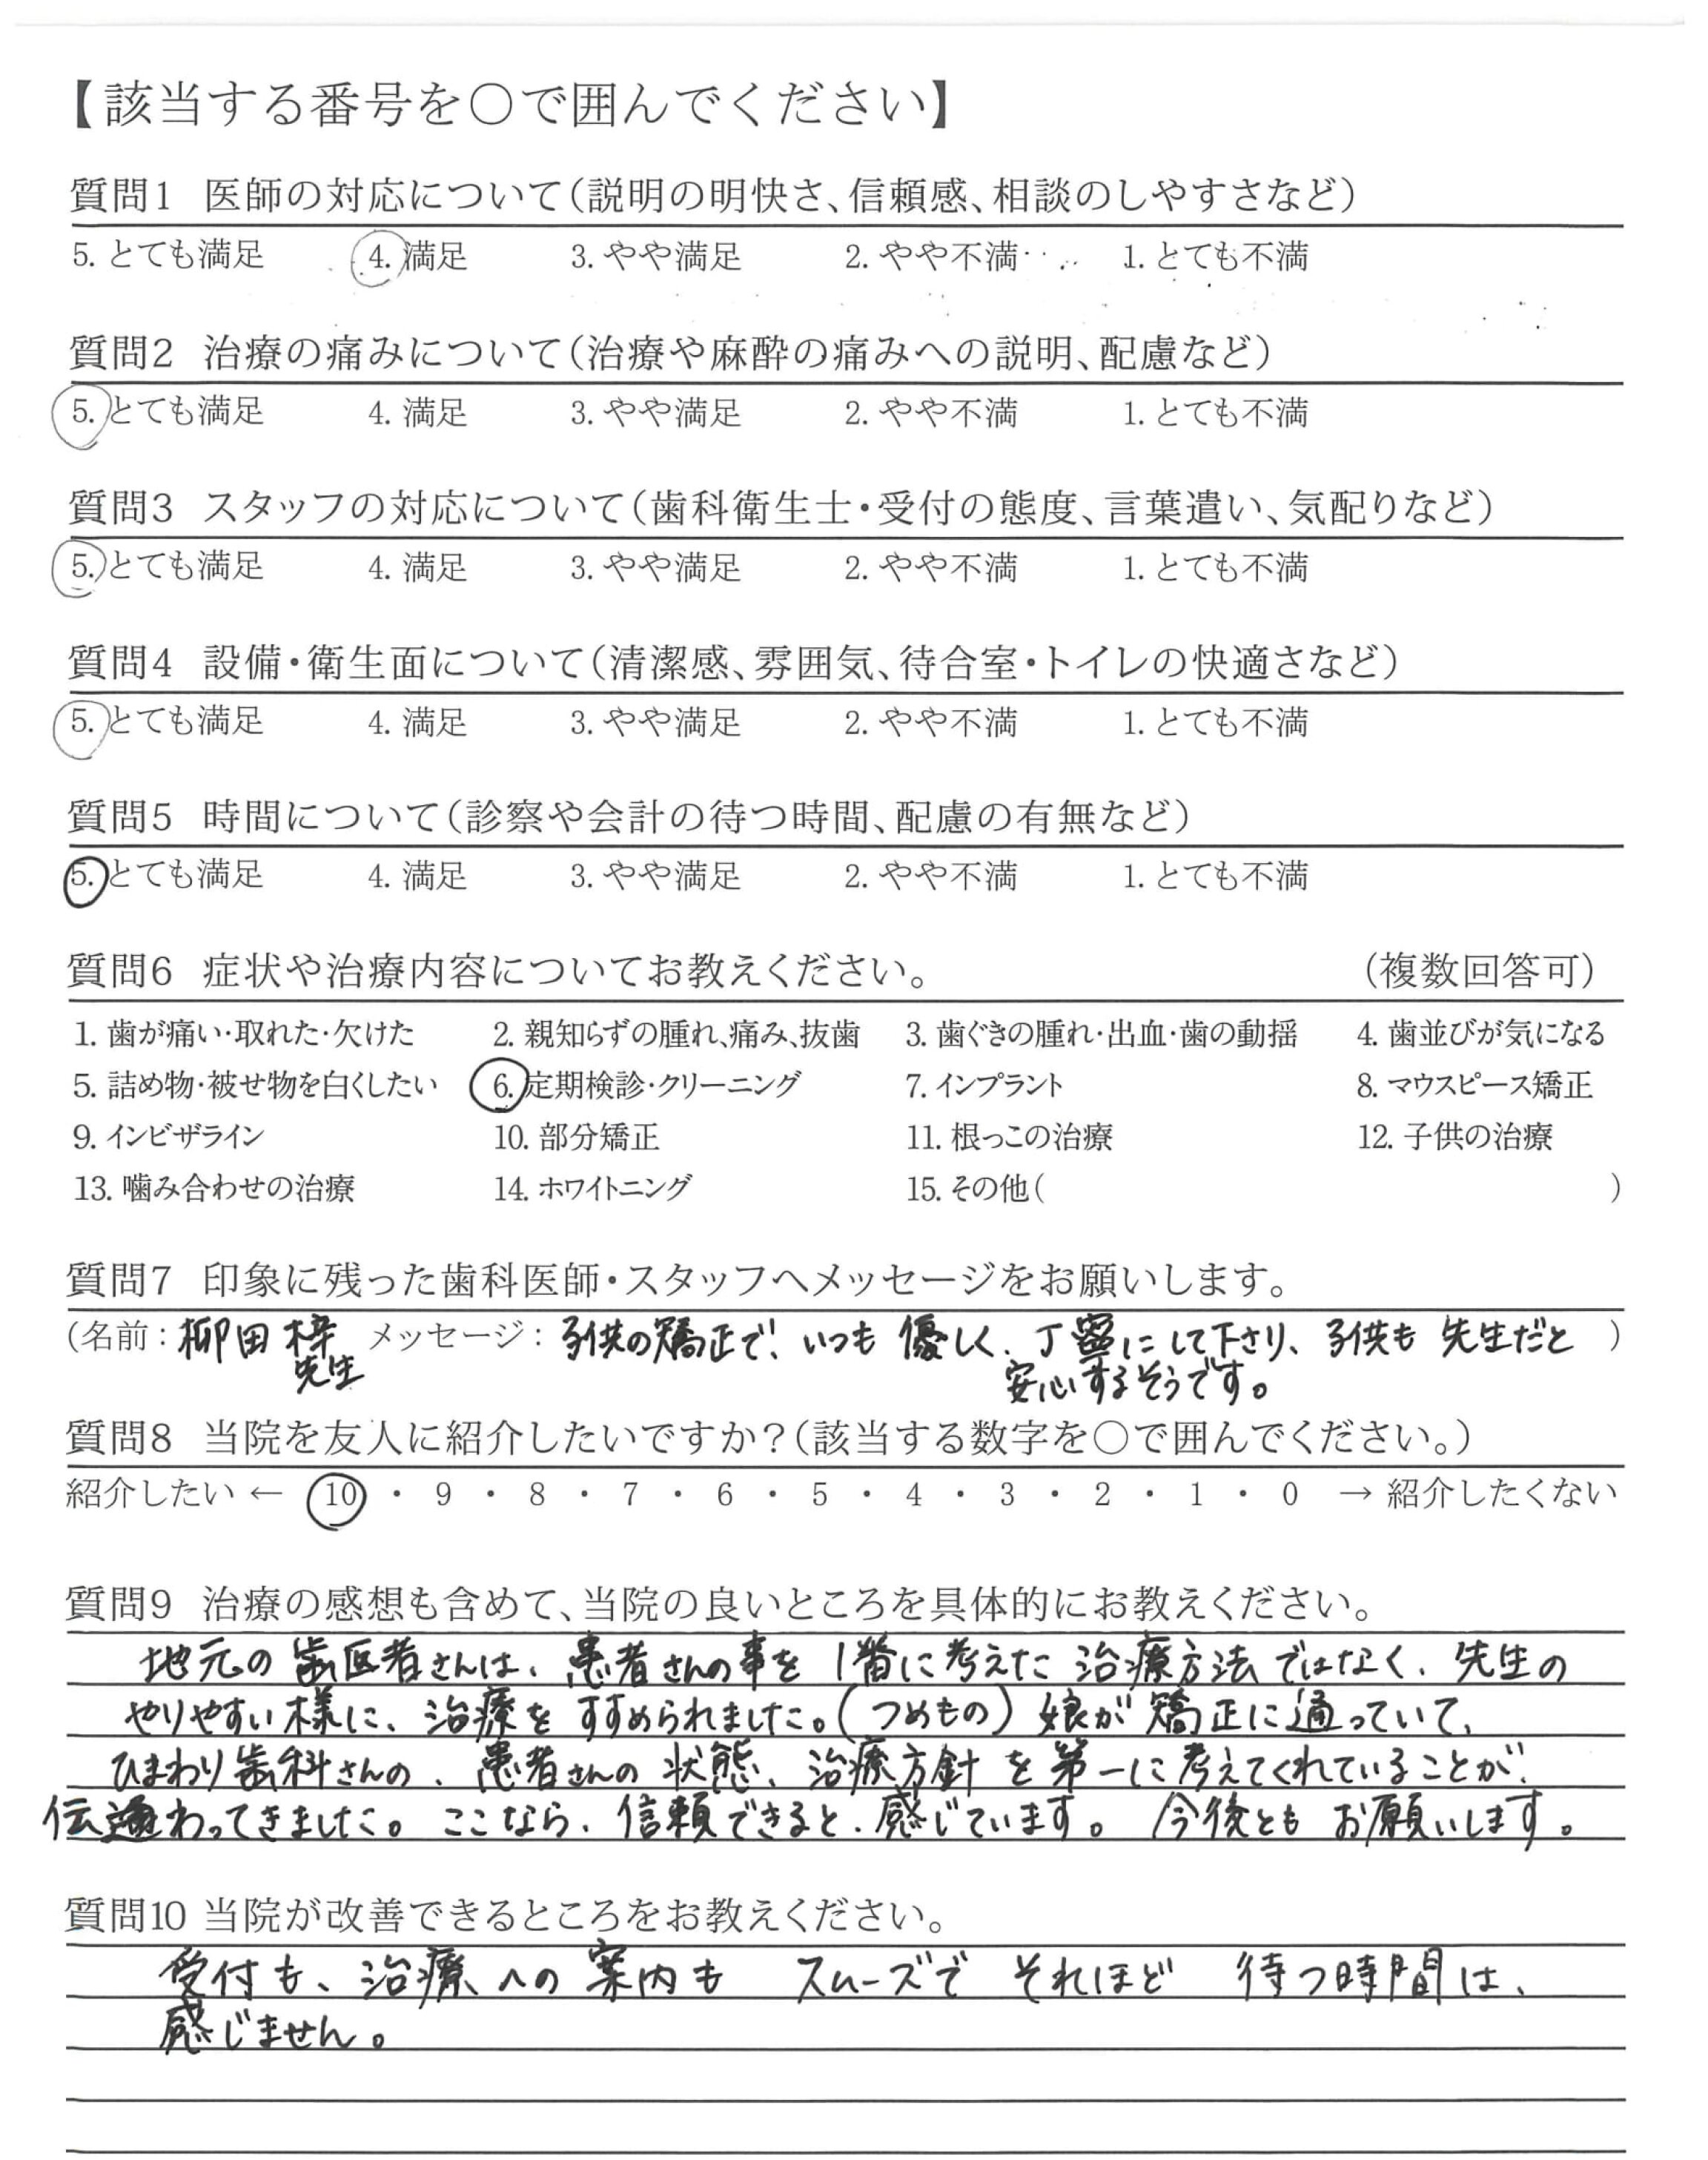 【該当する番号を○で囲んでください】
質問1 医師の対応について(説明の明快さ、信頼感、相談のしやすさなど)
5. とても満足 4. 満足 3. やや満足 2. やや不満 1. とても不満
質問2 治療の痛みについて(治療や麻酔の痛みへの説明、配慮など)
5. とても満足 4. 満足 3. やや満足 2. やや不満 1. とても不満
質問3 スタッフの対応について(歯科衛生士・受付の態度、言葉遣い、気配りなど)
5. とても満足 4. 満足 3. やや満足 2. やや不満 1. とても不満
質問4 設備・衛生面について(清潔感、雰囲気、待合室・トイレの快適さなど)
5. とても満足 4. 満足 3. やや満足 2. やや不満 1. とても不満
質問5 時間について(診察や会計の待つ時間、配慮の有無など)
5. とても満足 4. 満足 3. やや満足 2. やや不満 1. とても不満
質問6 症状や治療内容についてお教えください。 (複数回答可)
1. 歯が痛い・取れた・欠けた 2. 親知らずの腫れ、痛み、抜歯 3. 歯ぐきの腫れ・出血・歯の動揺 4. 歯並びが気になる
5. 詰め物・被せ物を白くしたい 6. 定期検診・クリーニング 7. インプラント 8. マウスピース矯正
9. インビザライン 10. 部分矯正 11. 根っこの治療 12. 子供の治療
13. 噛み合わせの治療 14. ホワイトニング 15. その他( )
質問7 印象に残った歯科医師・スタッフへメッセージをお願いします。
(名前：柳田 梓 メッセージ：子供の矯正で、いつも 優しく、丁寧にして下さり、子供も 先生だと )
先生 安心するそうです。
質問8 当院を友人に紹介したいですか？(該当する数字を○で囲んでください。)
紹介したい ← 10 ・ 9 ・ 8 ・ 7 ・ 6 ・ 5 ・ 4 ・ 3 ・ 2 ・ 1 ・ 0 → 紹介したくない
質問9 治療の感想も含めて、当院の良いところを具体的にお教えください。
地元の歯医者さんは、患者さんの事を 1番に考えた 治療方法ではなく、先生の
やりやすい様に、治療を すすめられました。(つめもの) 娘が 矯正に通っていて、
ひまわり歯科さんの、患者さんの 状態、治療方針 を 第一に考えてくれていることが、
伝わってきました。ここなら、信頼できると、感じています。今後とも お願いします。
質問10 当院が改善できるところをお教えください。
受付も、治療への 案内も スムーズで それほど 待つ時間は、
感じません。